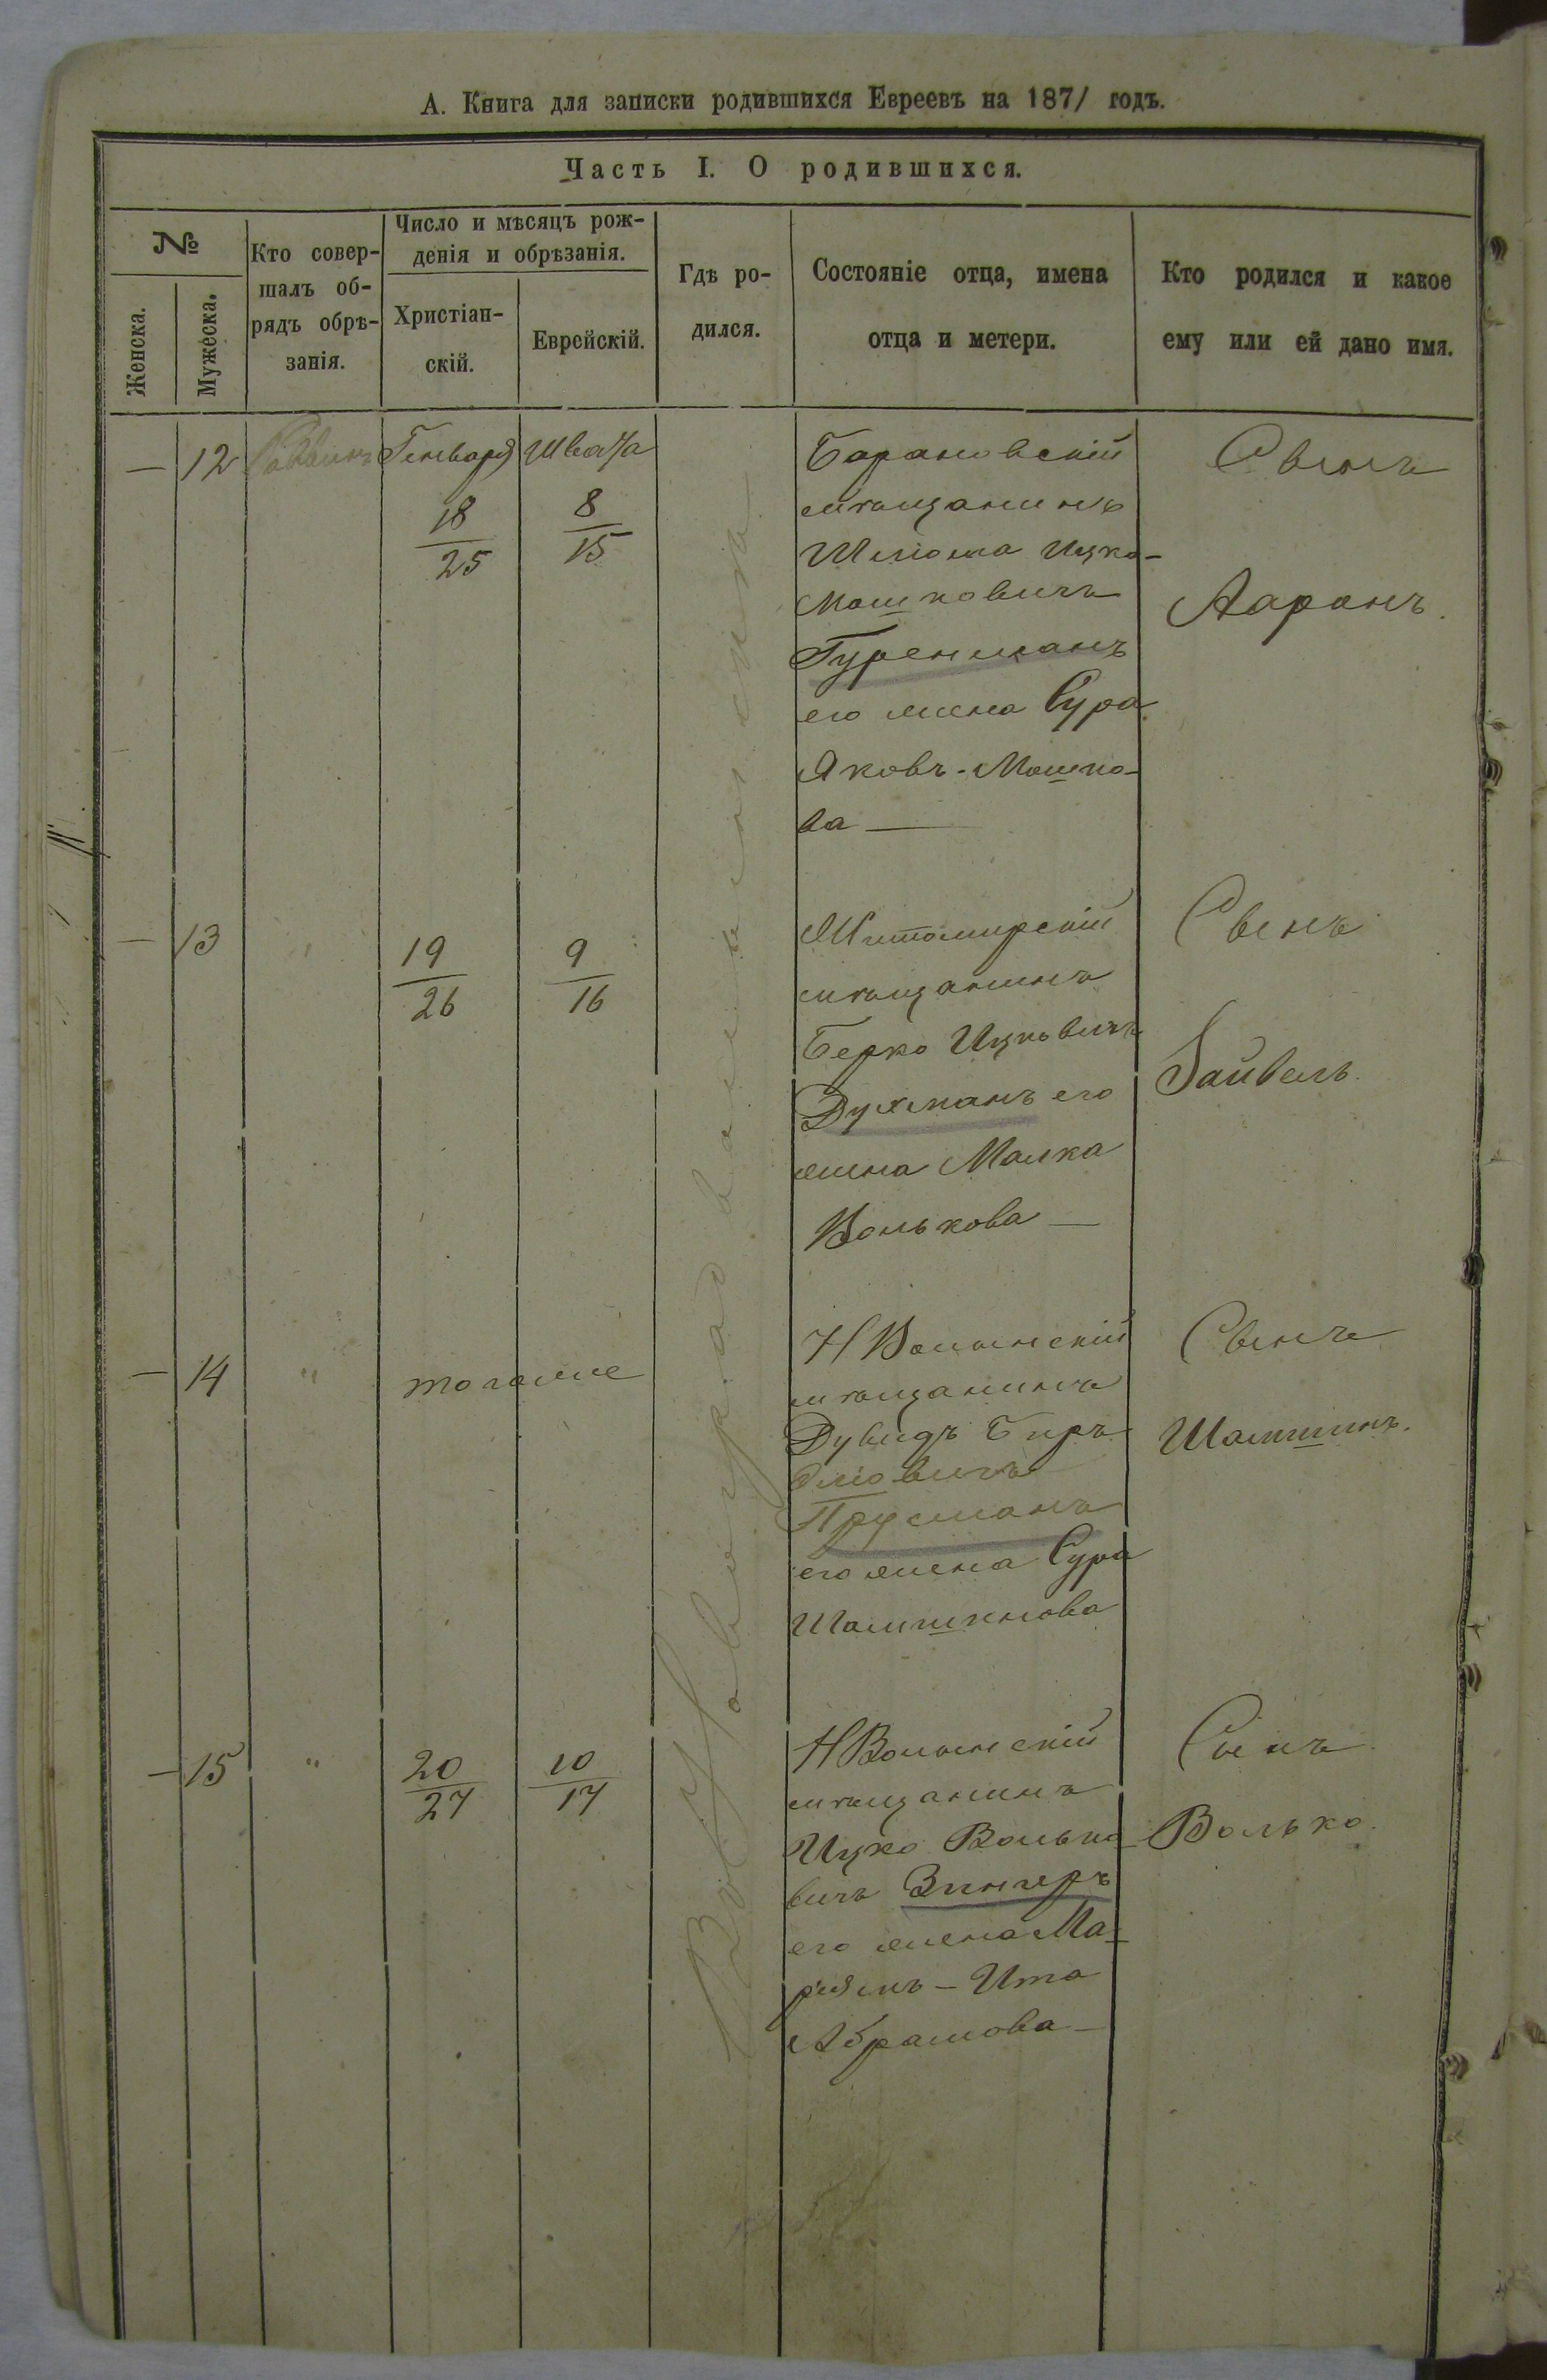 А. Книга для записки родившихся Евреевъ на 1871 годъ.
Часть I. О родившихся.
№
Женска.
Мужеска.
Кто совер-
шалъ об-
рядъ обрѣ-
занія.
Число и мѣсяцъ рож-
денія и обрѣзанія.
Христіан-
скій.
Еврейскій.
Гдѣ ро-
дился.
Состояніе отца, имена
отца и метери.
Кто родился и какое
ему или ей дано имя.
— 12 Раввинъ Генваря Швата
18
25
8
15
Барановскій
мѣщанинъ
Шліома Ицко-
Мошковичъ
Гуренманъ
его жена Сура
Яковъ-Мошко-
ва —
Сынъ
Ааронъ.
— 13 "
19
26
9
16
Житомирскій
мѣщанинъ
Берко Ицковичъ
Духманъ его
жена Малка
Волькова —
Сынъ
Зайвель.
— 14 " тогоже
НВолынскій
мѣщанинъ
Дувидъ Беръ
Пружанъ
его жена Сура
Шамшинова
Сынъ
Шамшинъ.
— 15 "
20
27
10
17
НВолынскій
мѣщанинъ
Ицко Волько
вичъ Зингеръ
его жена Ма-
ріямъ-Ита
Абрамова —
Сынъ
Волько.
Въ Новоградволынскѣ